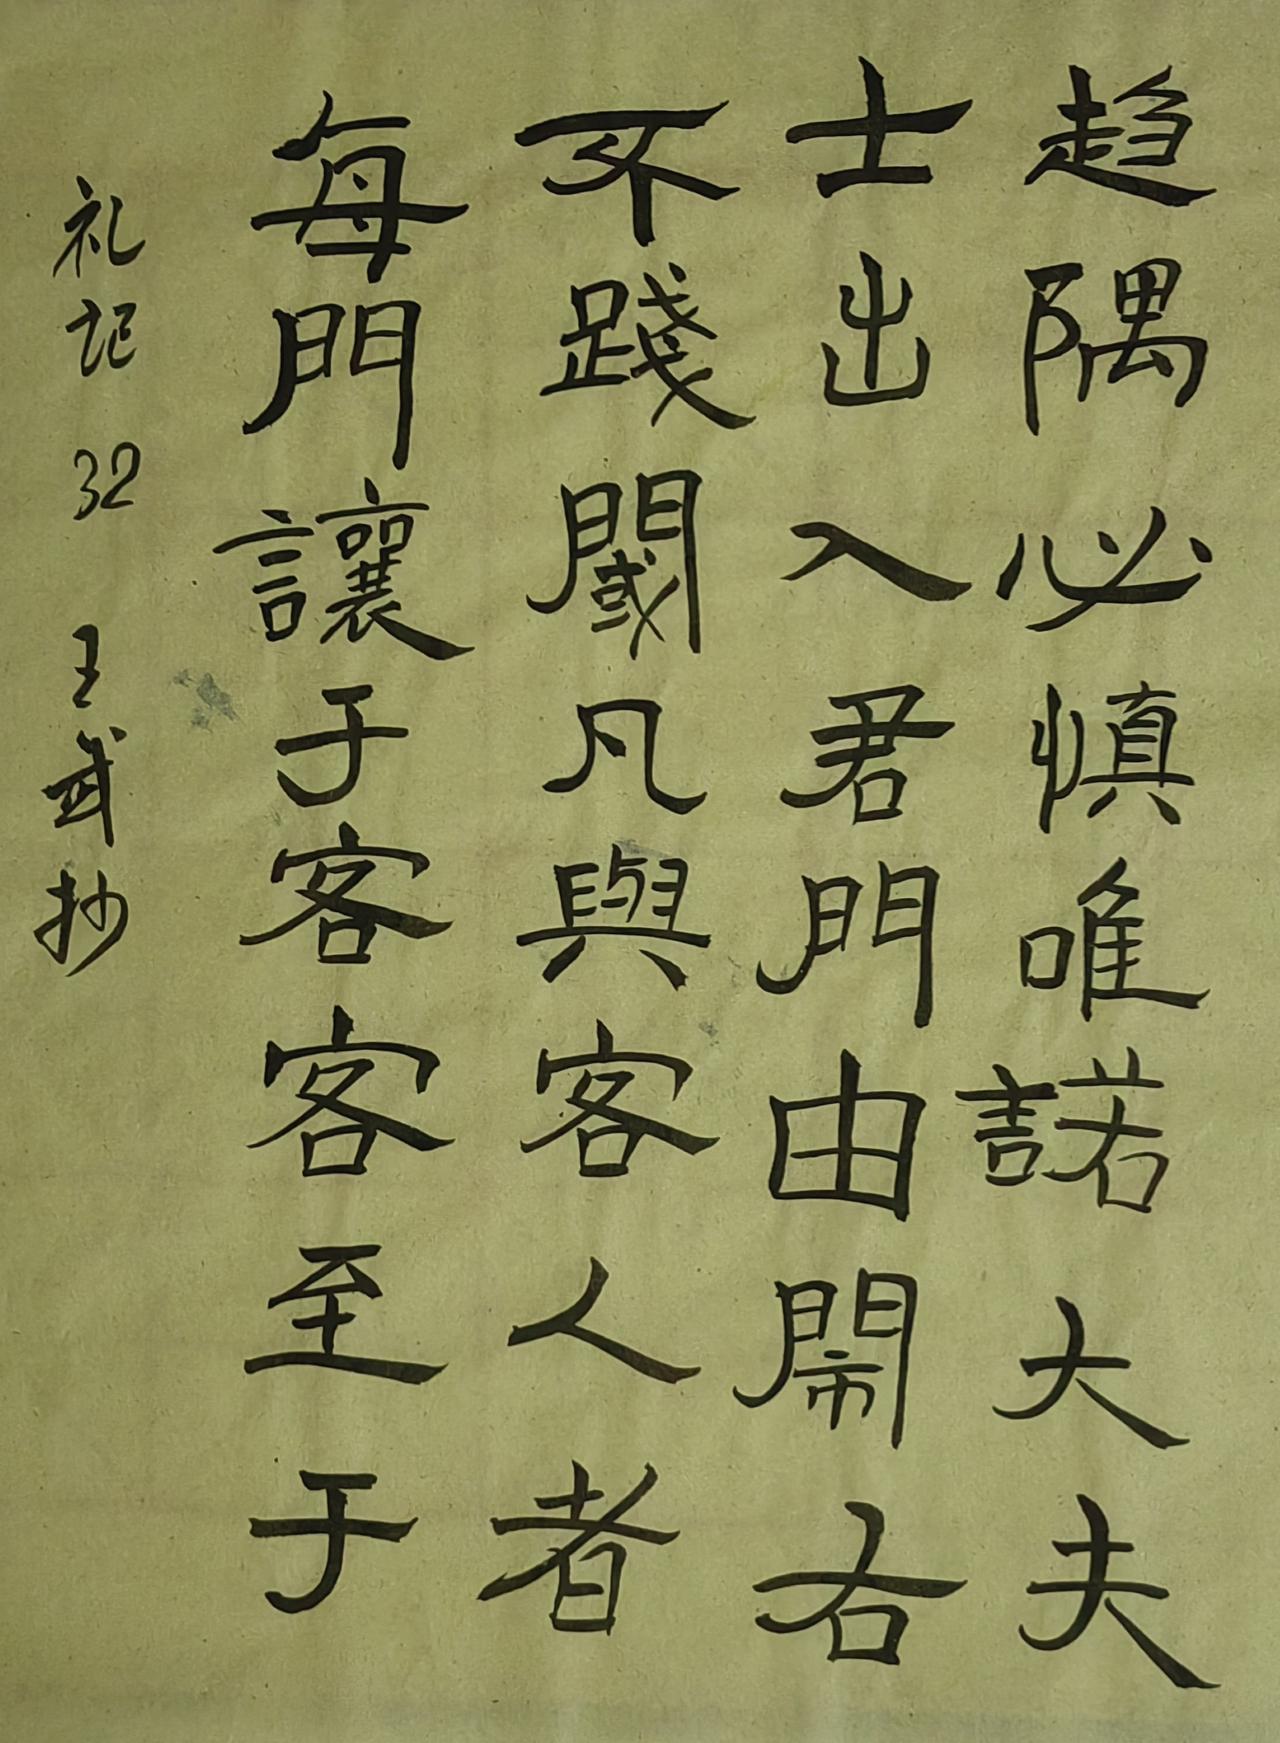 趋隅必慎唯諾大夫
士出入君門由閙右
不踐閾凡與客人者
每門讓于客客至于
礼记 32 王武抄